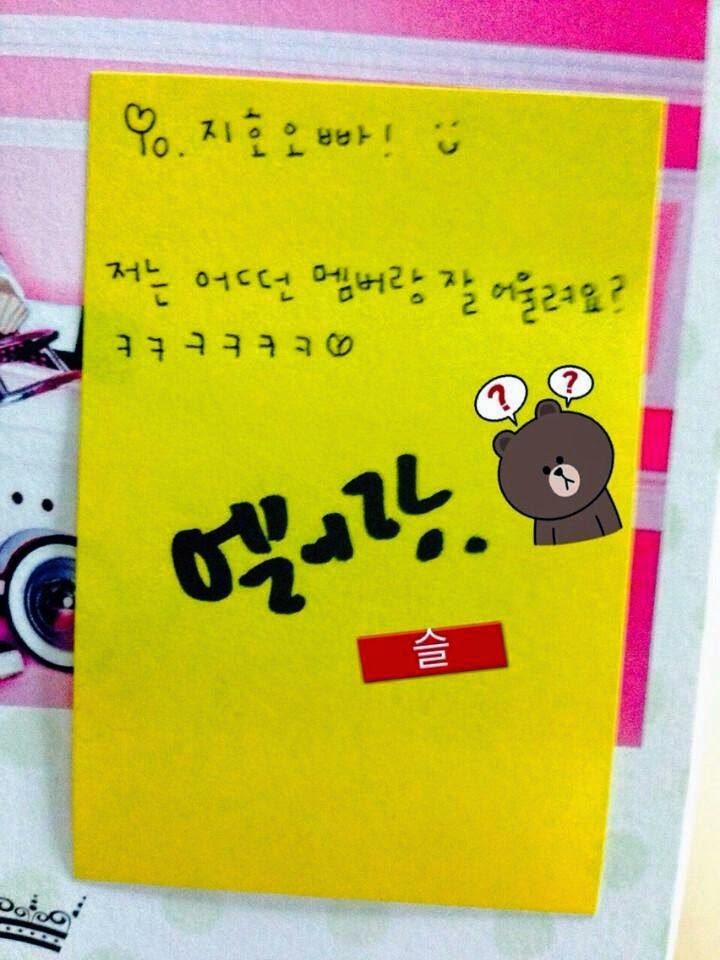 To. 지호오빠! :)
저는 어떤 멤버랑 잘 어울려요?
ㅋㅋㅋㅋㅋㅋ♡
? ?
엘이랑.
슬